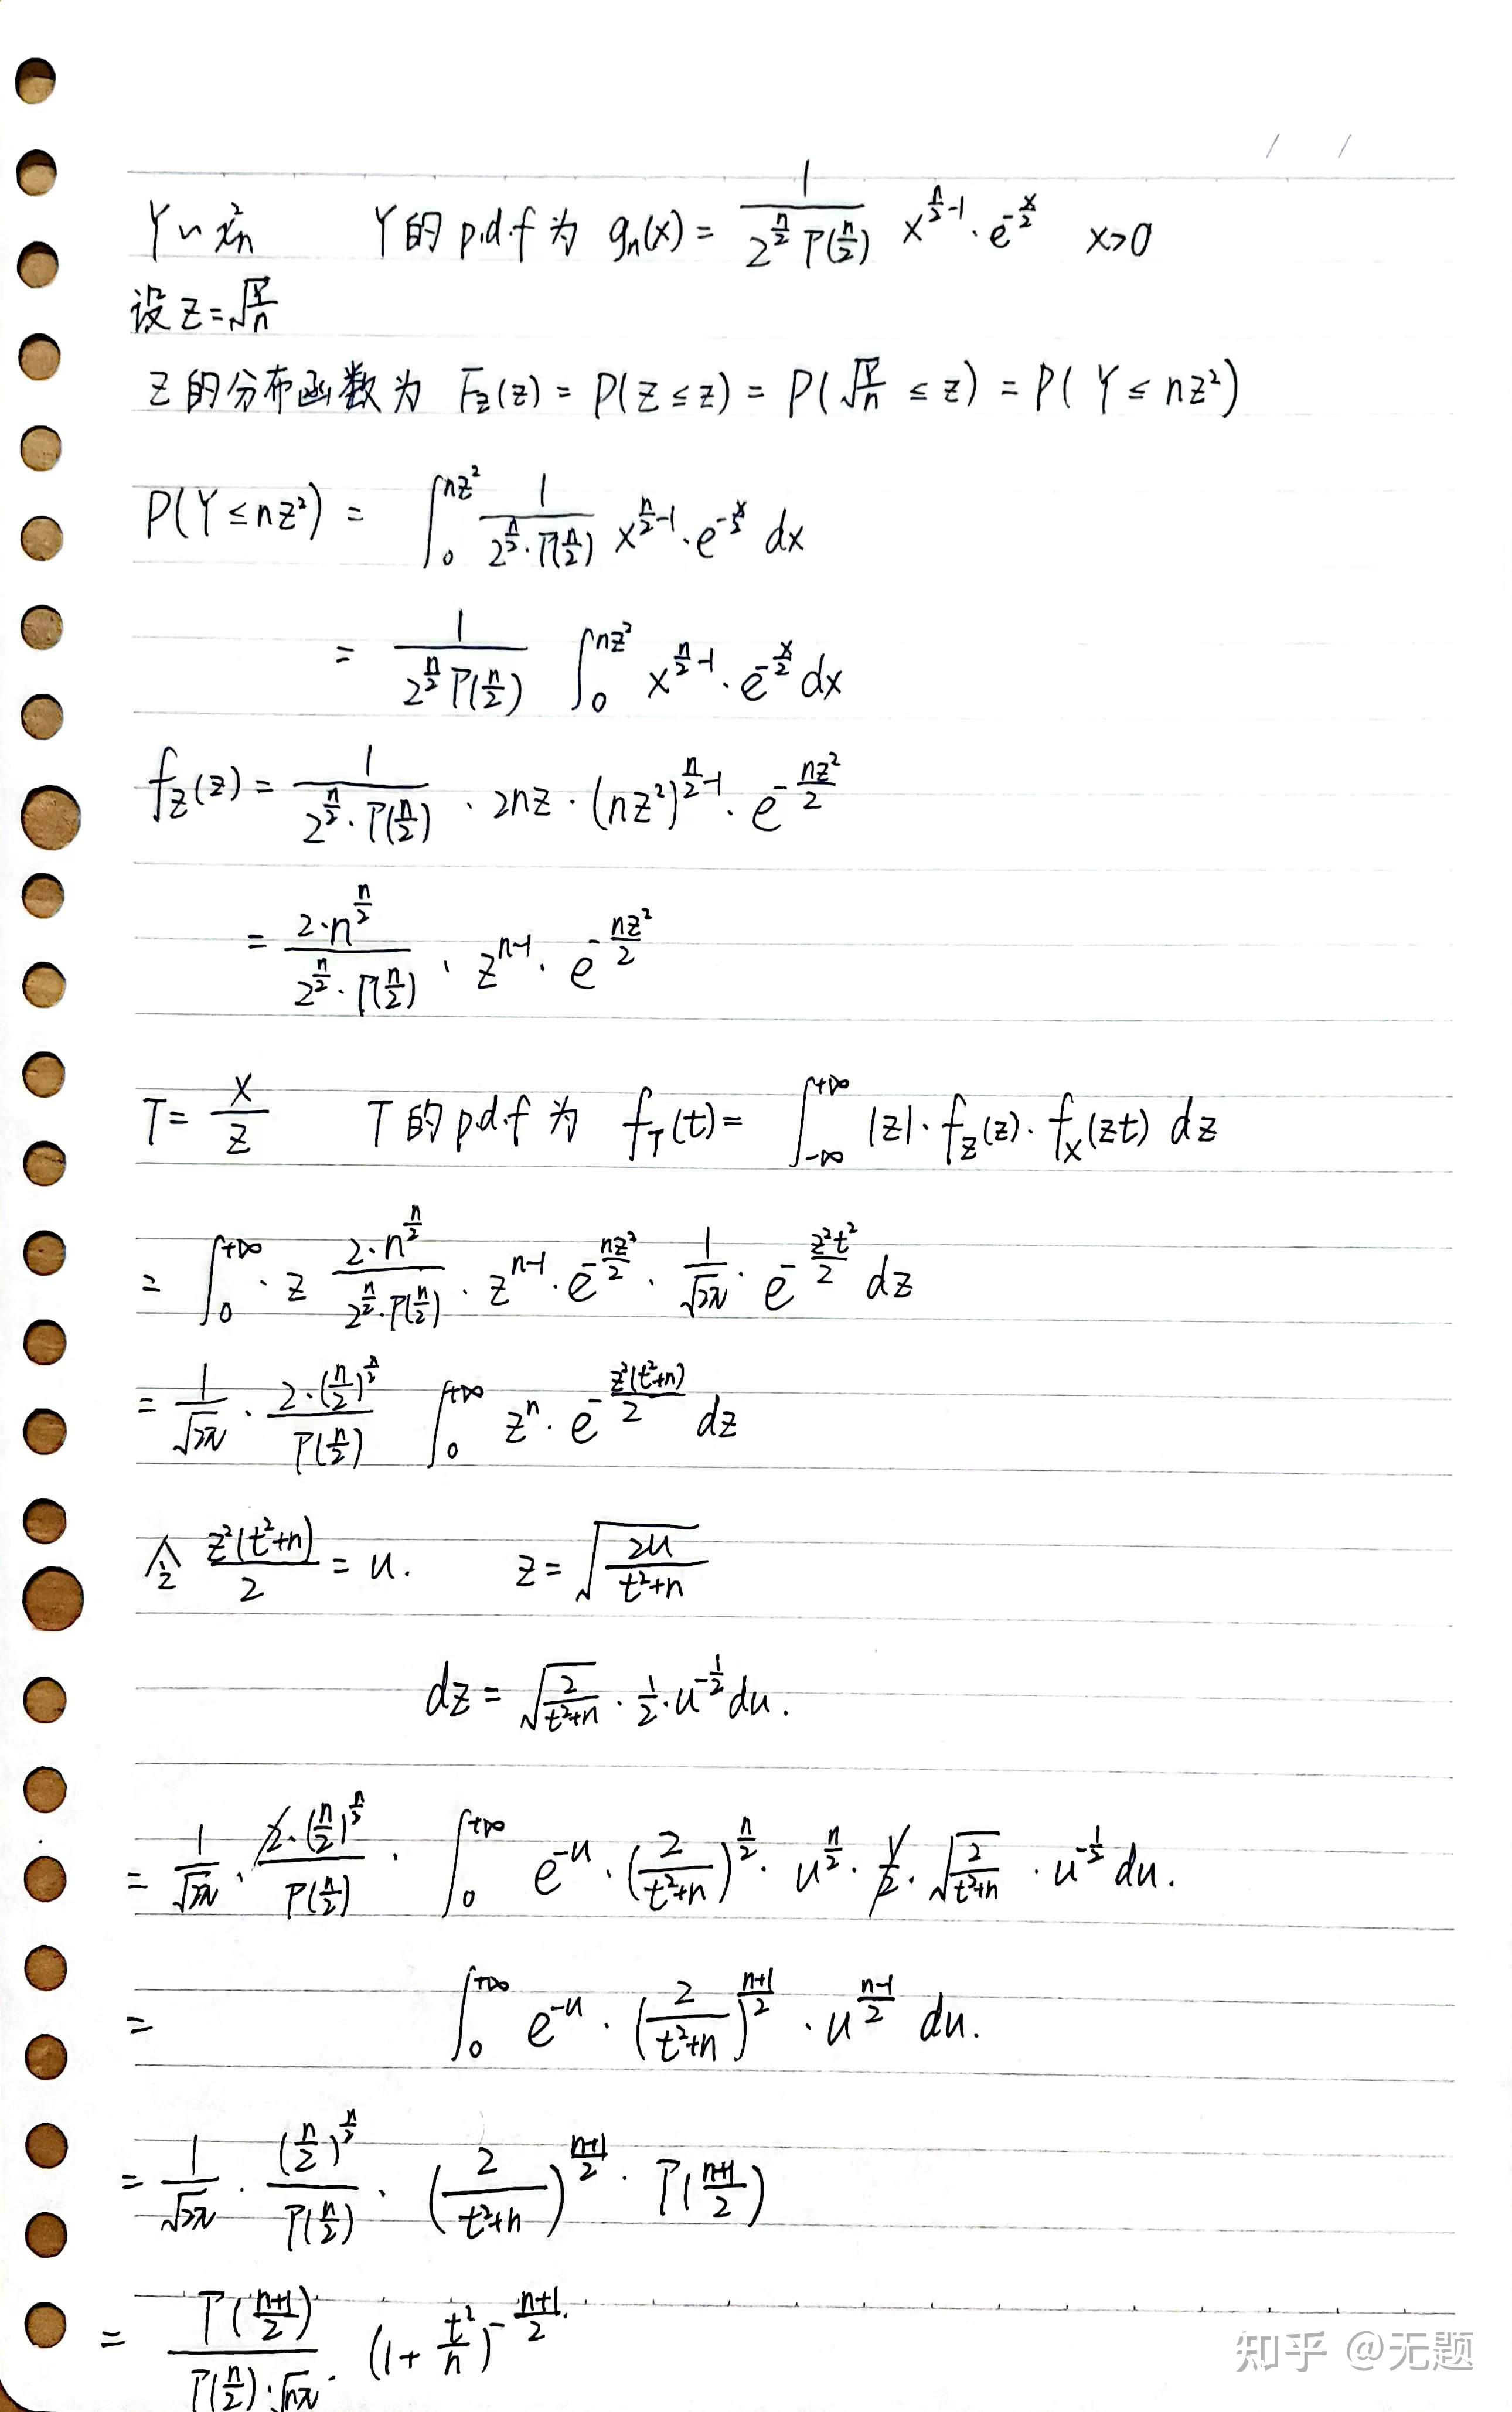 / /
Y ~ χ²ₙ Y的 p.d.f 为 gₙ(x) = \frac{1}{2^{\frac{n}{2}} Γ(\frac{n}{2})} x^{\frac{n}{2}-1} · e^{-\frac{x}{2}} x>0
设 Z = \sqrt{\frac{Y}{n}}
Z 的分布函数为 F_Z(z) = P(Z ≤ z) = P(\sqrt{\frac{Y}{n}} ≤ z) = P(Y ≤ nz²)
P(Y ≤ nz²) = \int_0^{nz²} \frac{1}{2^{\frac{n}{2}} · Γ(\frac{n}{2})} x^{\frac{n}{2}-1} · e^{-\frac{x}{2}} dx
= \frac{1}{2^{\frac{n}{2}} Γ(\frac{n}{2})} \int_0^{nz²} x^{\frac{n}{2}-1} · e^{-\frac{x}{2}} dx
f_Z(z) = \frac{1}{2^{\frac{n}{2}} · Γ(\frac{n}{2})} · 2nz · (nz²)^{\frac{n}{2}-1} · e^{-\frac{nz²}{2}}
= \frac{2·n^{\frac{n}{2}}}{2^{\frac{n}{2}} · Γ(\frac{n}{2})} · z^{n-1} · e^{-\frac{nz²}{2}}
T = \frac{X}{Z} T 的 p.d.f 为 f_T(t) = \int_{-∞}^{+∞} |z| · f_Z(z) · f_X(zt) dz
= \int_0^{+∞} · z \frac{2·n^{\frac{n}{2}}}{2^{\frac{n}{2}} · Γ(\frac{n}{2})} · z^{n-1} · e^{-\frac{nz²}{2}} · \frac{1}{\sqrt{2π}} · e^{-\frac{z²t²}{2}} dz
= \frac{1}{\sqrt{2π}} · \frac{2·(\frac{n}{2})^{\frac{n}{2}}}{Γ(\frac{n}{2})} \int_0^{+∞} z^n · e^{-\frac{z²(t²+n)}{2}} dz
令 \frac{z²(t²+n)}{2} = u. z = \sqrt{\frac{2u}{t²+n}}
dz = \sqrt{\frac{2}{t²+n}} · \frac{1}{2} · u^{-\frac{1}{2}} du.
= \frac{1}{\sqrt{2π}} · \frac{2·(\frac{n}{2})^{\frac{n}{2}}}{Γ(\frac{n}{2})} · \int_0^{+∞} e^{-u} · (\frac{2}{t²+n})^{\frac{n}{2}} · u^{\frac{n}{2}} · \frac{1}{2} · \sqrt{\frac{2}{t²+n}} · u^{-\frac{1}{2}} du.
= \int_0^{+∞} e^{-u} · (\frac{2}{t²+n})^{\frac{n+1}{2}} · u^{\frac{n-1}{2}} du.
= \frac{1}{\sqrt{2π}} · \frac{(\frac{n}{2})^{\frac{n}{2}}}{Γ(\frac{n}{2})} · (\frac{2}{t²+n})^{\frac{n+1}{2}} · Γ(\frac{n+1}{2})
= \frac{Γ(\frac{n+1}{2})}{Γ(\frac{n}{2}) · \sqrt{nπ}} · (1 + \frac{t²}{n})^{-\frac{n+1}{2}}.
知乎 @无题